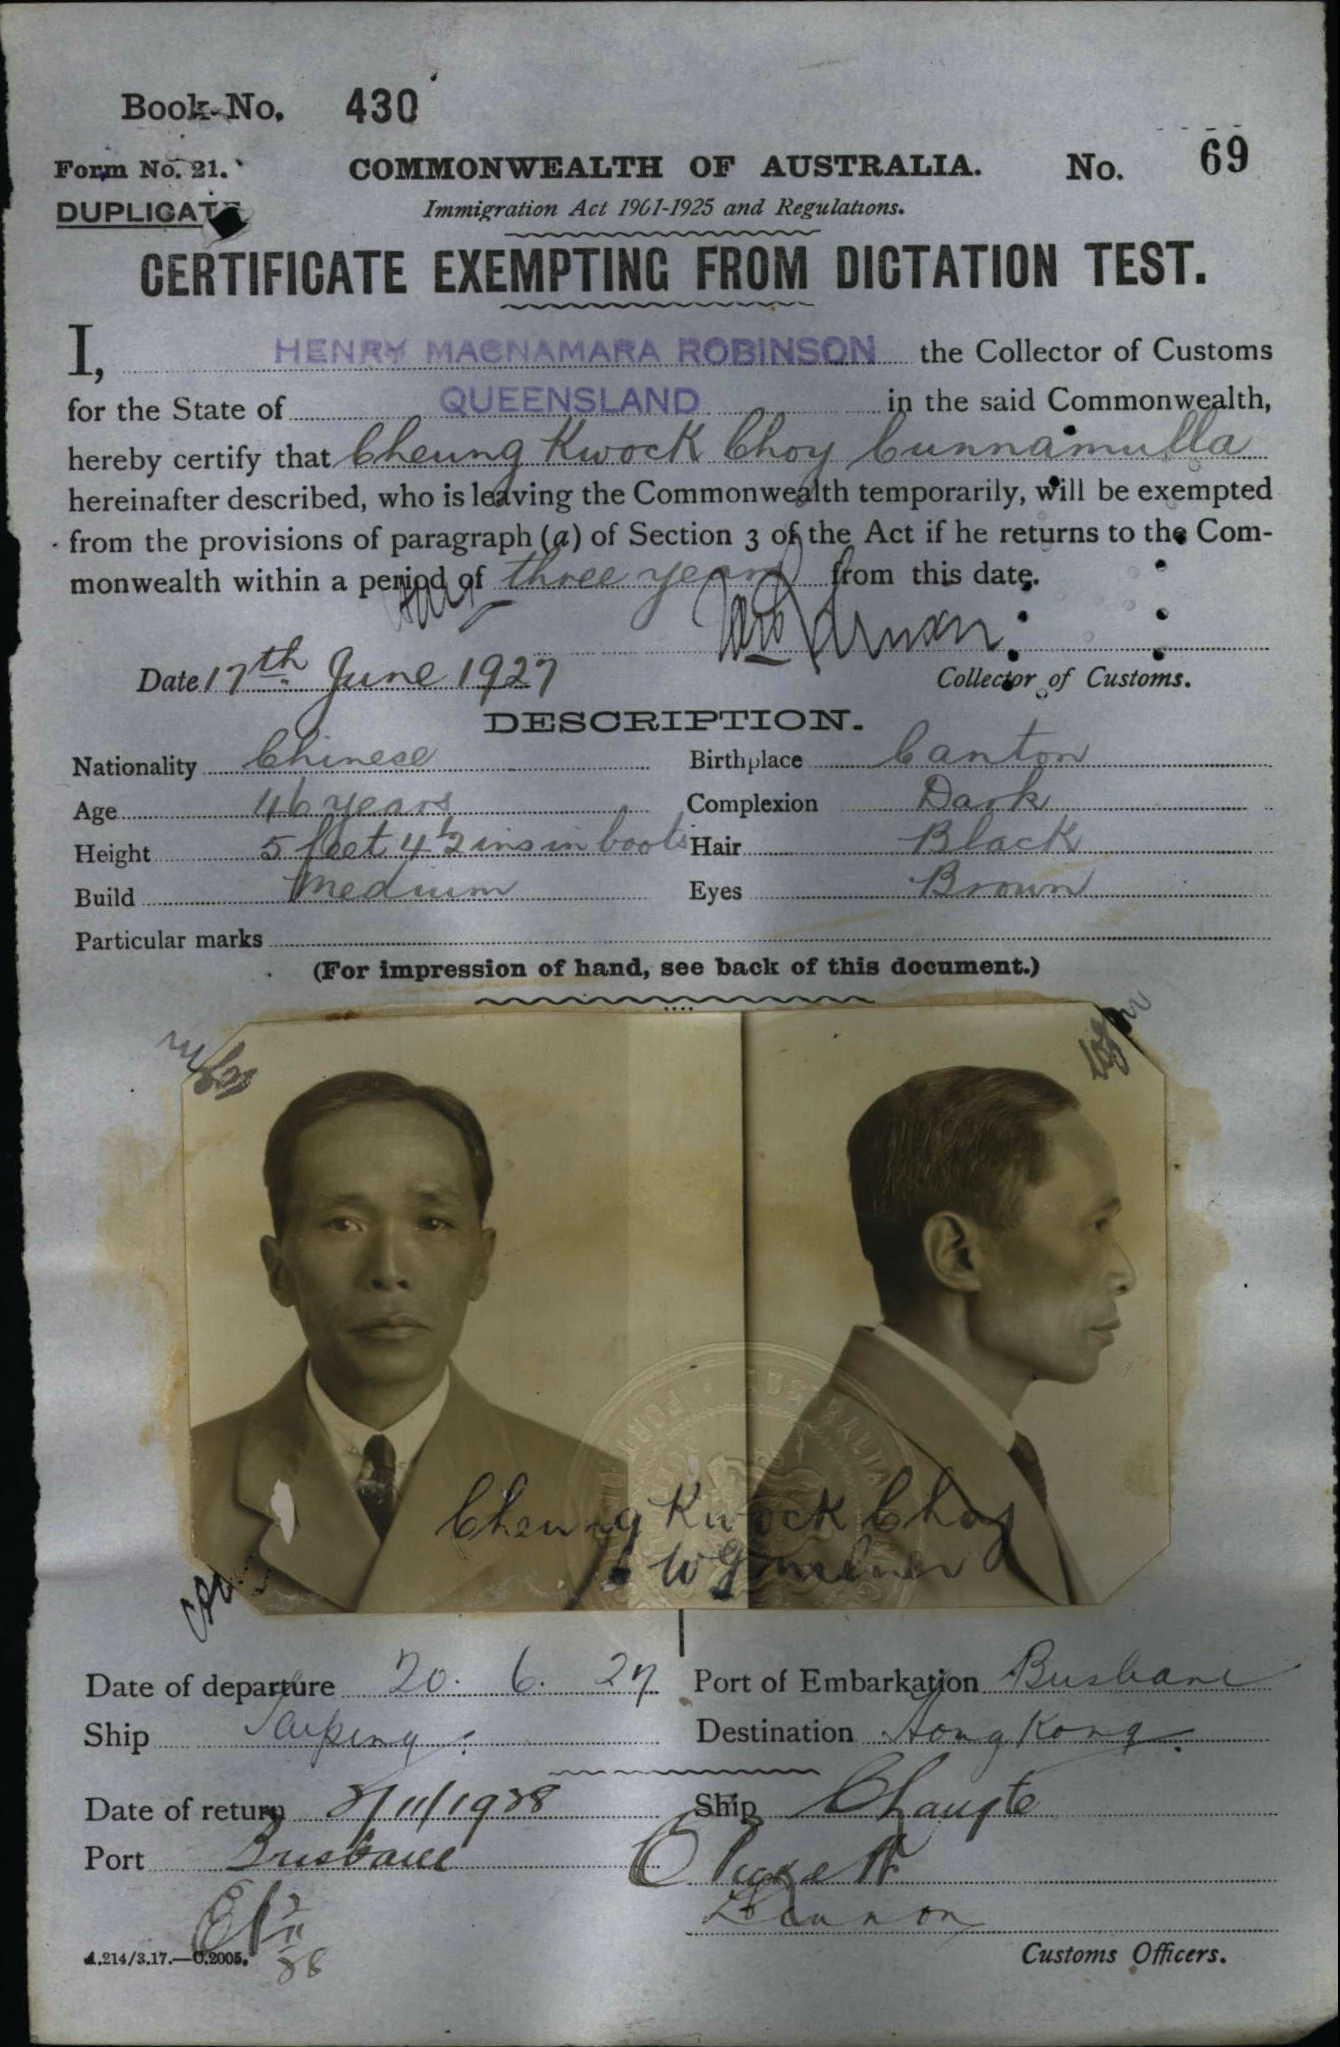 Book No. 430
Form No. 21. COMMONWEALTH OF AUSTRALIA. No. 69
DUPLICATE
Immigration Act 1901-1925 and Regulations.
CERTIFICATE EXEMPTING FROM DICTATION TEST.
I, HENRY MACNAMARA ROBINSON the Collector of Customs
for the State of QUEENSLAND in the said Commonwealth,
hereby certify that Cheung Kwock Choy Cunnamulla
hereinafter described, who is leaving the Commonwealth temporarily, will be exempted
from the provisions of paragraph (a) of Section 3 of the Act if he returns to the Com-
monwealth within a period of three years from this date.
Date 17th June 1927 Collector of Customs.
DESCRIPTION.
Nationality Chinese Birthplace Canton
Age 46 years Complexion Dark
Height 5 feet 4 1/2 ins in boots Hair Black
Build Medium Eyes Brown
Particular marks
(For impression of hand, see back of this document.)
Cheung Kwock Choy
Date of departure 20. 6. 27 Port of Embarkation Brisbane
Ship Taiping. Destination Hong Kong.
Date of return 8/11/1928 Ship Changte
Port Brisbane
Customs Officers.
A.214/3.17.—C.2005.